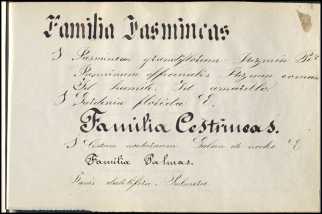 Familia Jasmincas
Jasminum grandiflorum Jazmin
Jasminum officinalis Jazmin comun
Id. humile Id. amarillo
Gardenia florida E.
Familia Cestrineas.
Cestrum nocturnum Galan de noche E
Familia Palmas.
dactilifera